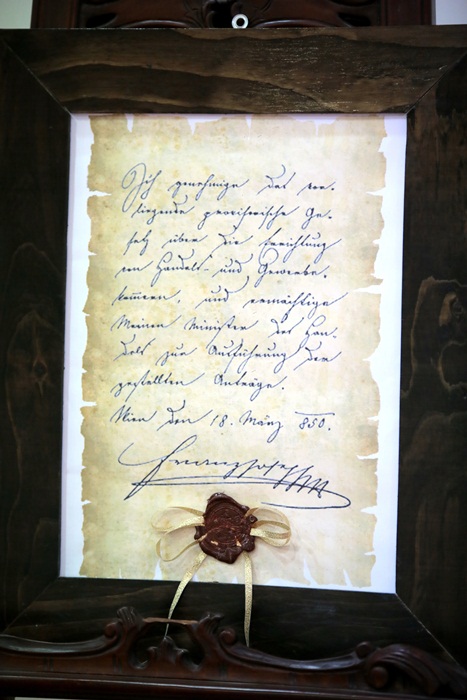 Ich genehmige das vor-
liegende provisorische Ge-
setz über die Errichtung
von Handels- und Gewerbe-
kammern, und ermächtige
Meinen Minister des Han-
dels zur Ausführung der
gestellten Anträge.
Wien den 18. März 850.
Franz Joseph